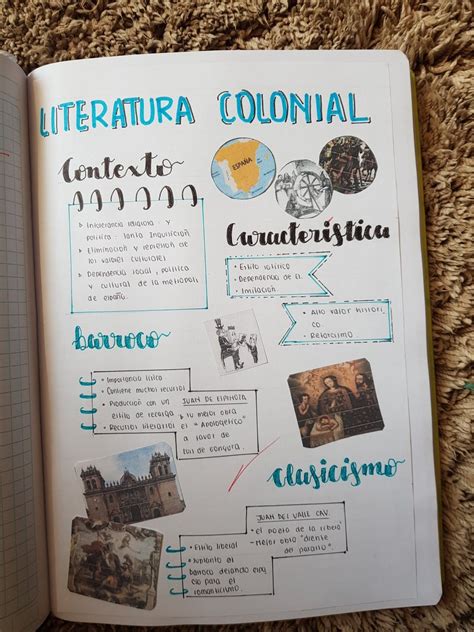 LITERATURA COLONIAL
Contexto
ESPAÑA
Intolerancia religiosa y
política: Santa Inquisición
Eliminación y represión de
los valores culturales
Dependencia social, política
y cultural de la metrópoli
de españa.
Característica
Estilo
Dependencia de
Imitación.
Alto valor históri
co.
Retoricismo
barroco
Importancia lírica
Contiene muchos recursos
Producción con un
estilo de recarga
Recursos literarios
JUAN DE ESPINOZA
tu mejor obra
el "Apologético"
a favor de
Luis de Gongora.
clasicismo
JUAN DEL VALLE CAV.
el poeta de la ribera
Mejor obra "diente
del parnaso".
Estilo liberal
barroco dejando espa
cio para el
romanticismo.